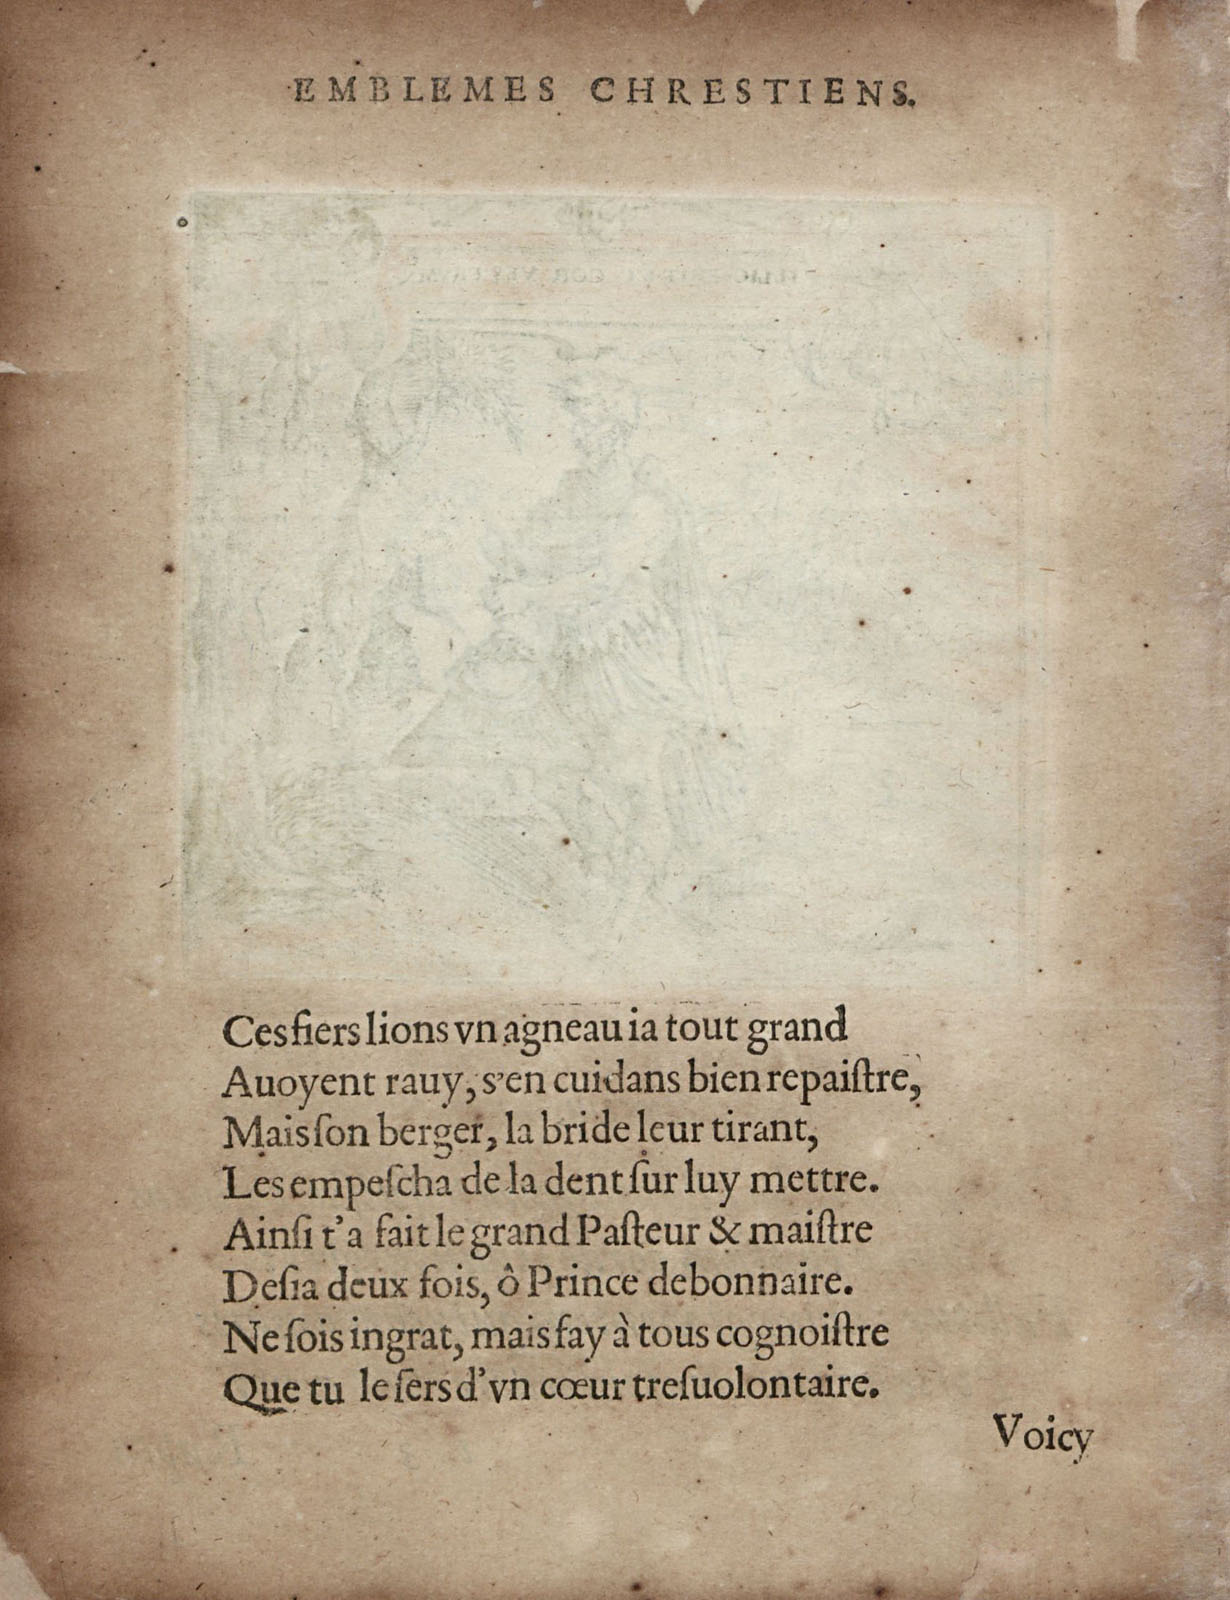 EMBLEMES CHRESTIENS.
Ces fiers lions vn agneau ia tout grand
Auoyent rauy, s'en cuidans bien repaiſtre,
Mais ſon berger, la bride leur tirant,
Les empeſcha de la dent ſur luy mettre.
Ainſi t'a fait le grand Paſteur & maiſtre
Deſia deux fois, ô Prince debonnaire.
Ne ſois ingrat, mais fay à tous cognoiſtre
Que tu le ſers d'vn cœur treſuolontaire.
Voicy